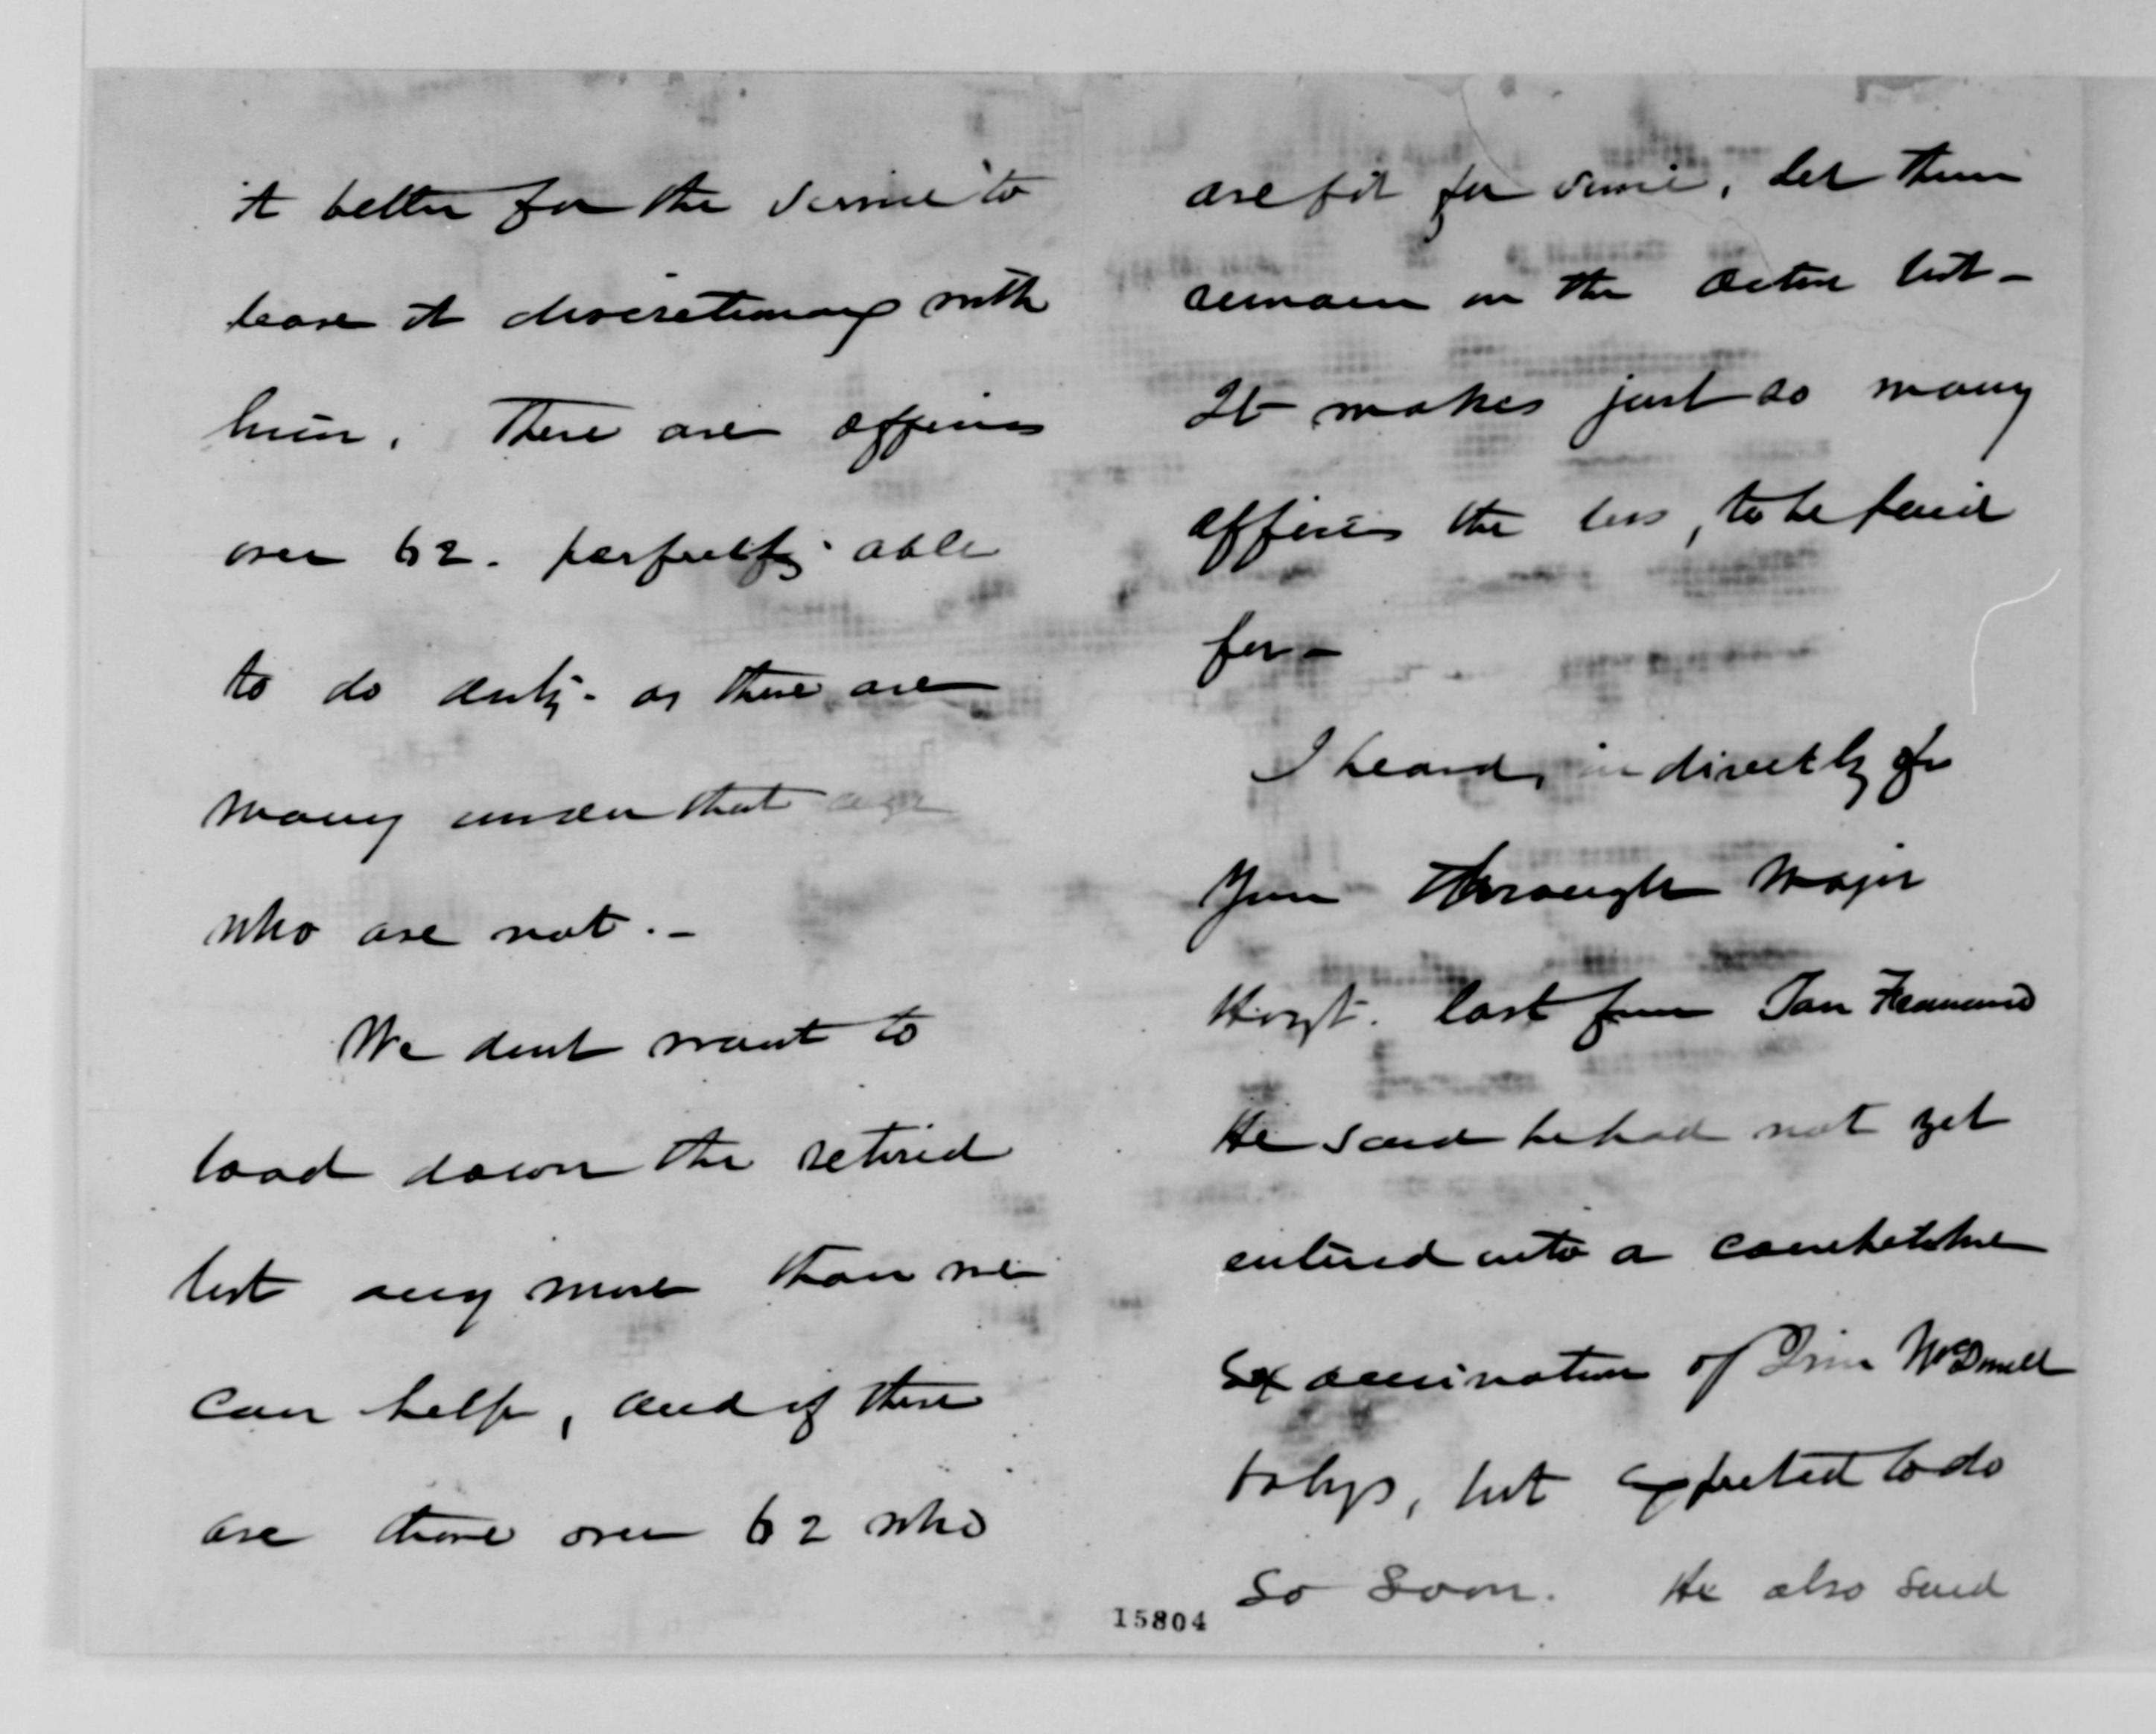 it better for the service to
leave it discretionary with
him. There are officers
over 62. perfectly able
to do duty - as there are
many under that age
who are not. -
We dont want to
load down the retired
list any more than we
can help, and if there
are those over 62 who
are fit for service, let them
remain on the active list -
It makes just so many
officers the less, to be paid
for -
I heard, indirectly fr
you through Major
Hoyt. last from San Francisco
He said he had not yet
entered into a competitive
Examination of McDowell
babys, but expected to do
so soon. He also said
15804